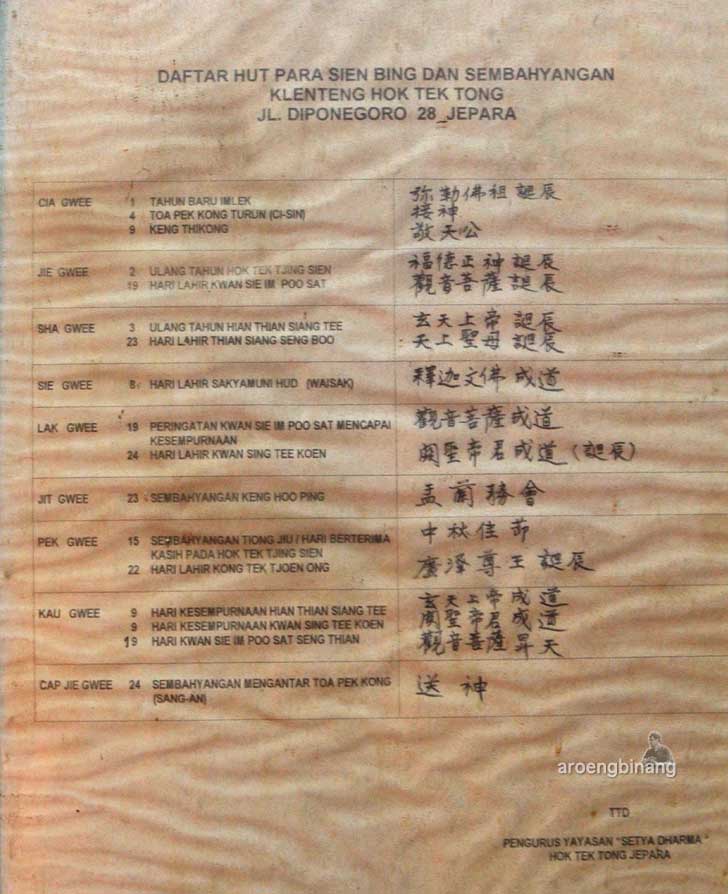 DAFTAR HUT PARA SIEN BING DAN SEMBAHYANGAN
KLENTENG HOK TEK TONG
JL. DIPONEGORO 28 JEPARA
CIA GWEE 1 TAHUN BARU IMLEK 弥勒佛祖誕辰
4 TOA PEK KONG TURUN (CI-SIN) 接神
9 KENG THIKONG 敬天公
JIE GWEE 2 ULANG TAHUN HOK TEK TJING SIEN 福德正神誕辰
19 HARI LAHIR KWAN SIE IM POO SAT 觀音菩薩誕辰
SHA GWEE 3 ULANG TAHUN HIAN THIAN SIANG TEE 玄天上帝誕辰
23 HARI LAHIR THIAN SIANG SENG BOO 天上聖母誕辰
SIE GWEE 8 HARI LAHIR SAKYAMUNI HUD (WAISAK) 釋迦文佛成道
LAK GWEE 19 PERINGATAN KWAN SIE IM POO SAT MENCAPAI 觀音菩薩成道
KESEMPURNAAN
24 HARI LAHIR KWAN SING TEE KOEN 関聖帝君成道(誕辰)
JIT GWEE 23 SEMBAHYANGAN KENG HOO PING 孟蘭勝會
PEK GWEE 15 SEMBAHYANGAN TIONG JIU / HARI BERTERIMA 中秋佳節
KASIH PADA HOK TEK TJING SIEN
22 HARI LAHIR KONG TEK TJOEN ONG 廣澤尊王誕辰
KAU GWEE 9 HARI KESEMPURNAAN HIAN THIAN SIANG TEE 玄天上帝成道
9 HARI KESEMPURNAAN KWAN SING TEE KOEN 関聖帝君成道
19 HARI KWAN SIE IM POO SAT SENG THIAN 觀音菩薩昇天
CAP JIE GWEE 24 SEMBAHYANGAN MENGANTAR TOA PEK KONG 送神
(SANG-AN)
aroengbinang
TTD
PENGURUS YAYASAN "SETYA DHARMA"
HOK TEK TONG JEPARA